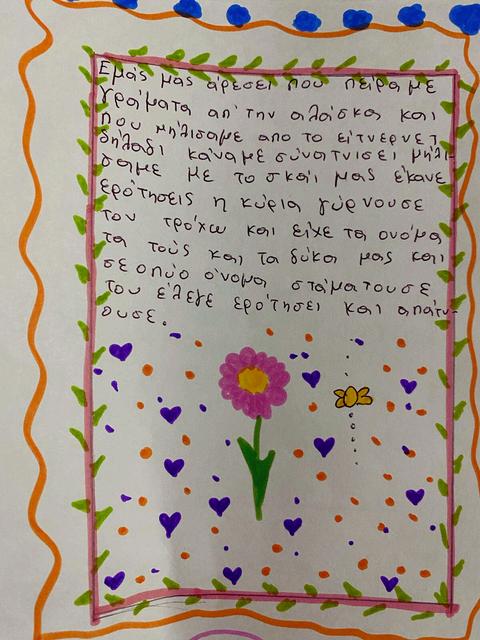 Εμάς μας άρεσει που πείραμε
γράματα απ' την αλάσκα και
που μηλίσαμε απο το είτνερνετ
δηλαδί κάναμε σύνατνισει μηλί-
σαμε με το σκάι μας έκανε
ερότησεις η κύρια γύρνουσε
τον τρόχω και είχε τα ονόμα
τα τούς και τα δύκα μας και
σε οπύο όνομα στάματουσε
του έλεγε ερότησει και απάτν-
ουσε.